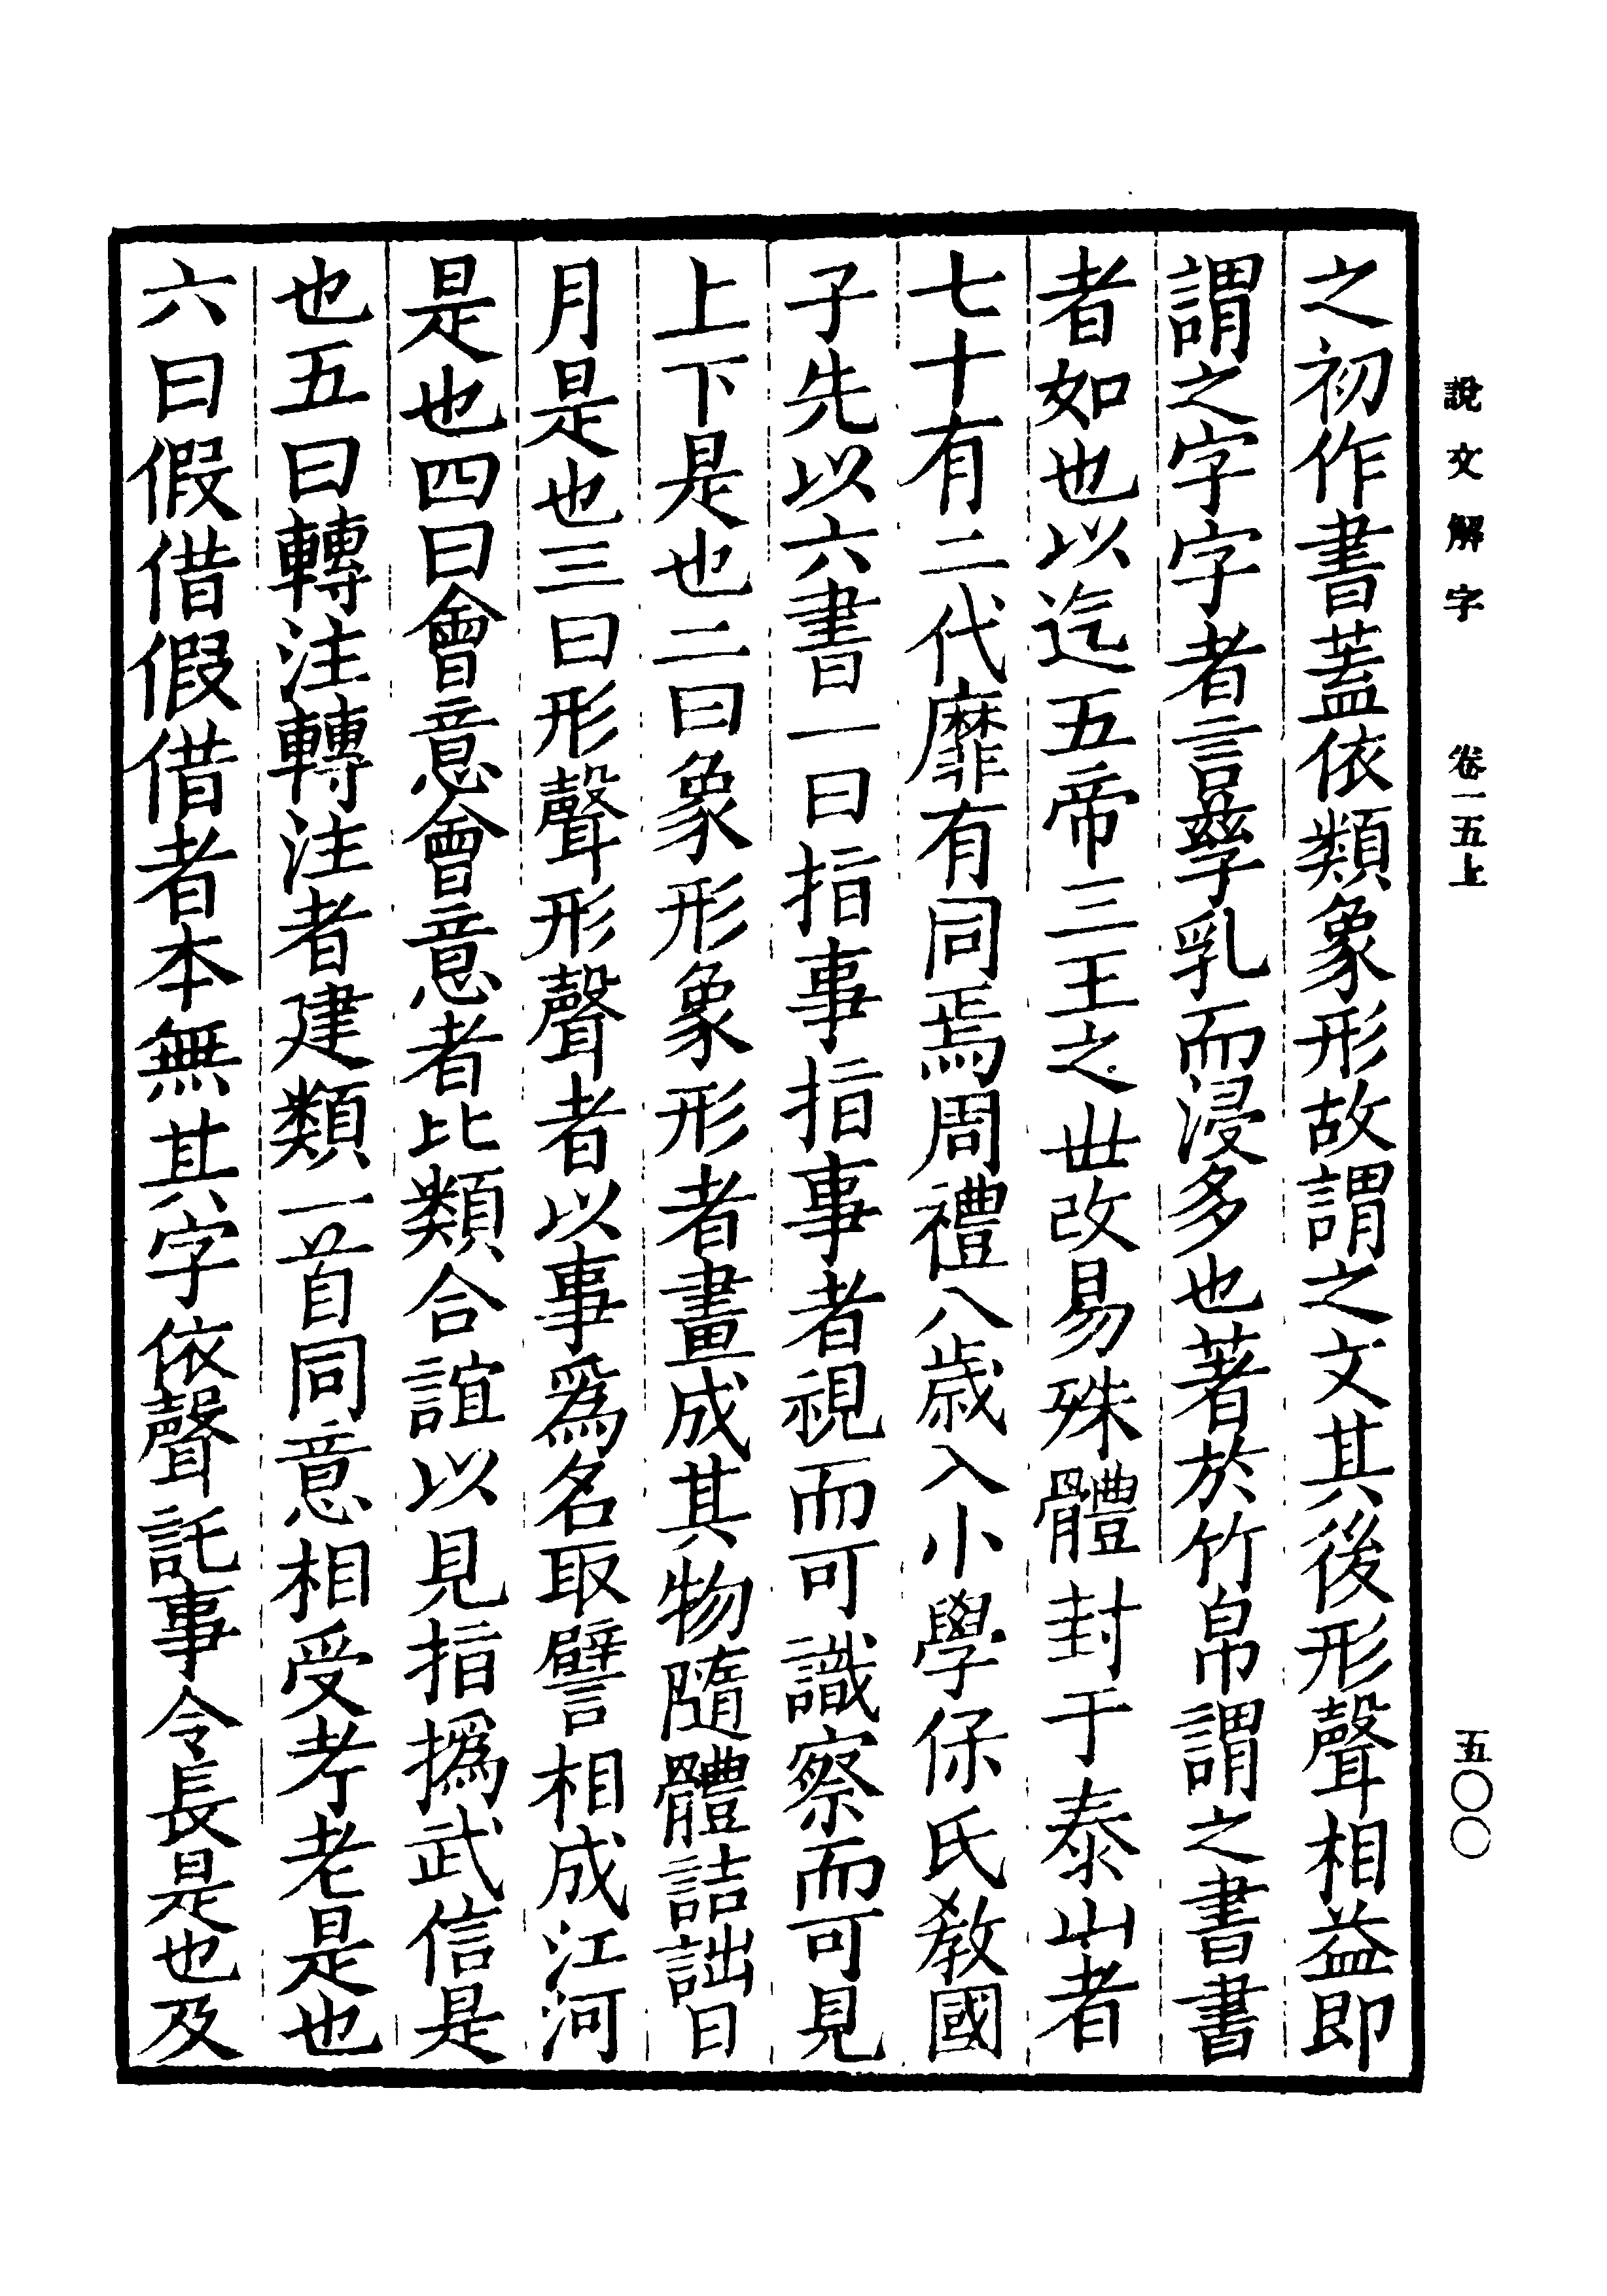 說文解字 卷一五上 五〇〇
之初作書蓋依類象形故謂之文其後形聲相益即
謂之字字者言孳乳而浸多也著於竹帛謂之書書
者如也以迄五帝三王之世改易殊體封于泰山者
七十有二代靡有同焉周禮八歲入小學保氏教國
子先以六書一曰指事指事者視而可識察而可見
上下是也二曰象形象形者畫成其物隨體詰詘日
月是也三曰形聲形聲者以事爲名取譬相成江河
是也四曰會意會意者比類合誼以見指撝武信是
也五曰轉注轉注者建類一首同意相受考老是也
六曰假借假借者本無其字依聲託事令長是也及